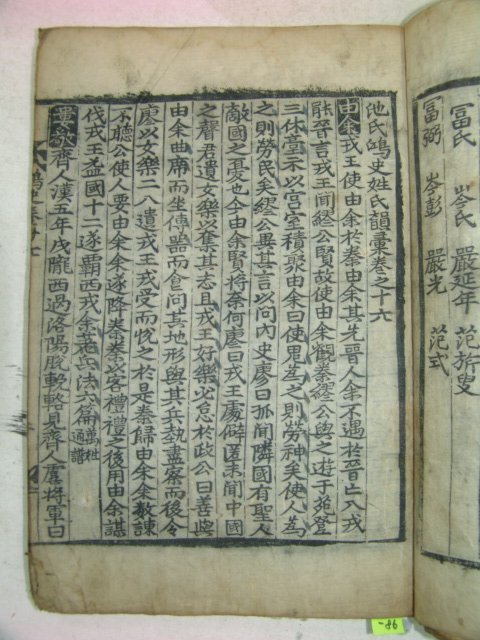 冨氏 岑氏 嚴延年 范祈叟
冨弼 岑彭 嚴光 范式
池氏鴻史姓氏韻彙卷之十六
由余戎王使由余於秦由余其先晉人余不遇於晉亡入戎
能晉言戎王聞繆公賢故使由余觀秦繆公與之遊于苑登
三休臺示以宮室積聚由余曰使鬼爲之則勞神矣使人爲
之則勞民矣繆公異其言以問內史廖曰孤聞隣國有聖人
敵國之憂也今由余賢將奈何廖曰戎王處僻匿未聞中國
之聲君遺女樂以奪其志且戎王好樂必怠於政公曰善與
由余曲席而坐傳器而食問其地形與其兵埶盡察而後令
廖以女樂二八遺戎王戎受而悅之於是秦歸由余余數諫
不聽公使人要由余余遂降秦秦以客禮禮之後用由余謀
伐戎王益國十二遂覇西戎余著兵法六篇萬姓通譜
婁敬齊人漢五年戍隴西過洛陽脫輓輅見齊人虞將軍曰
-86